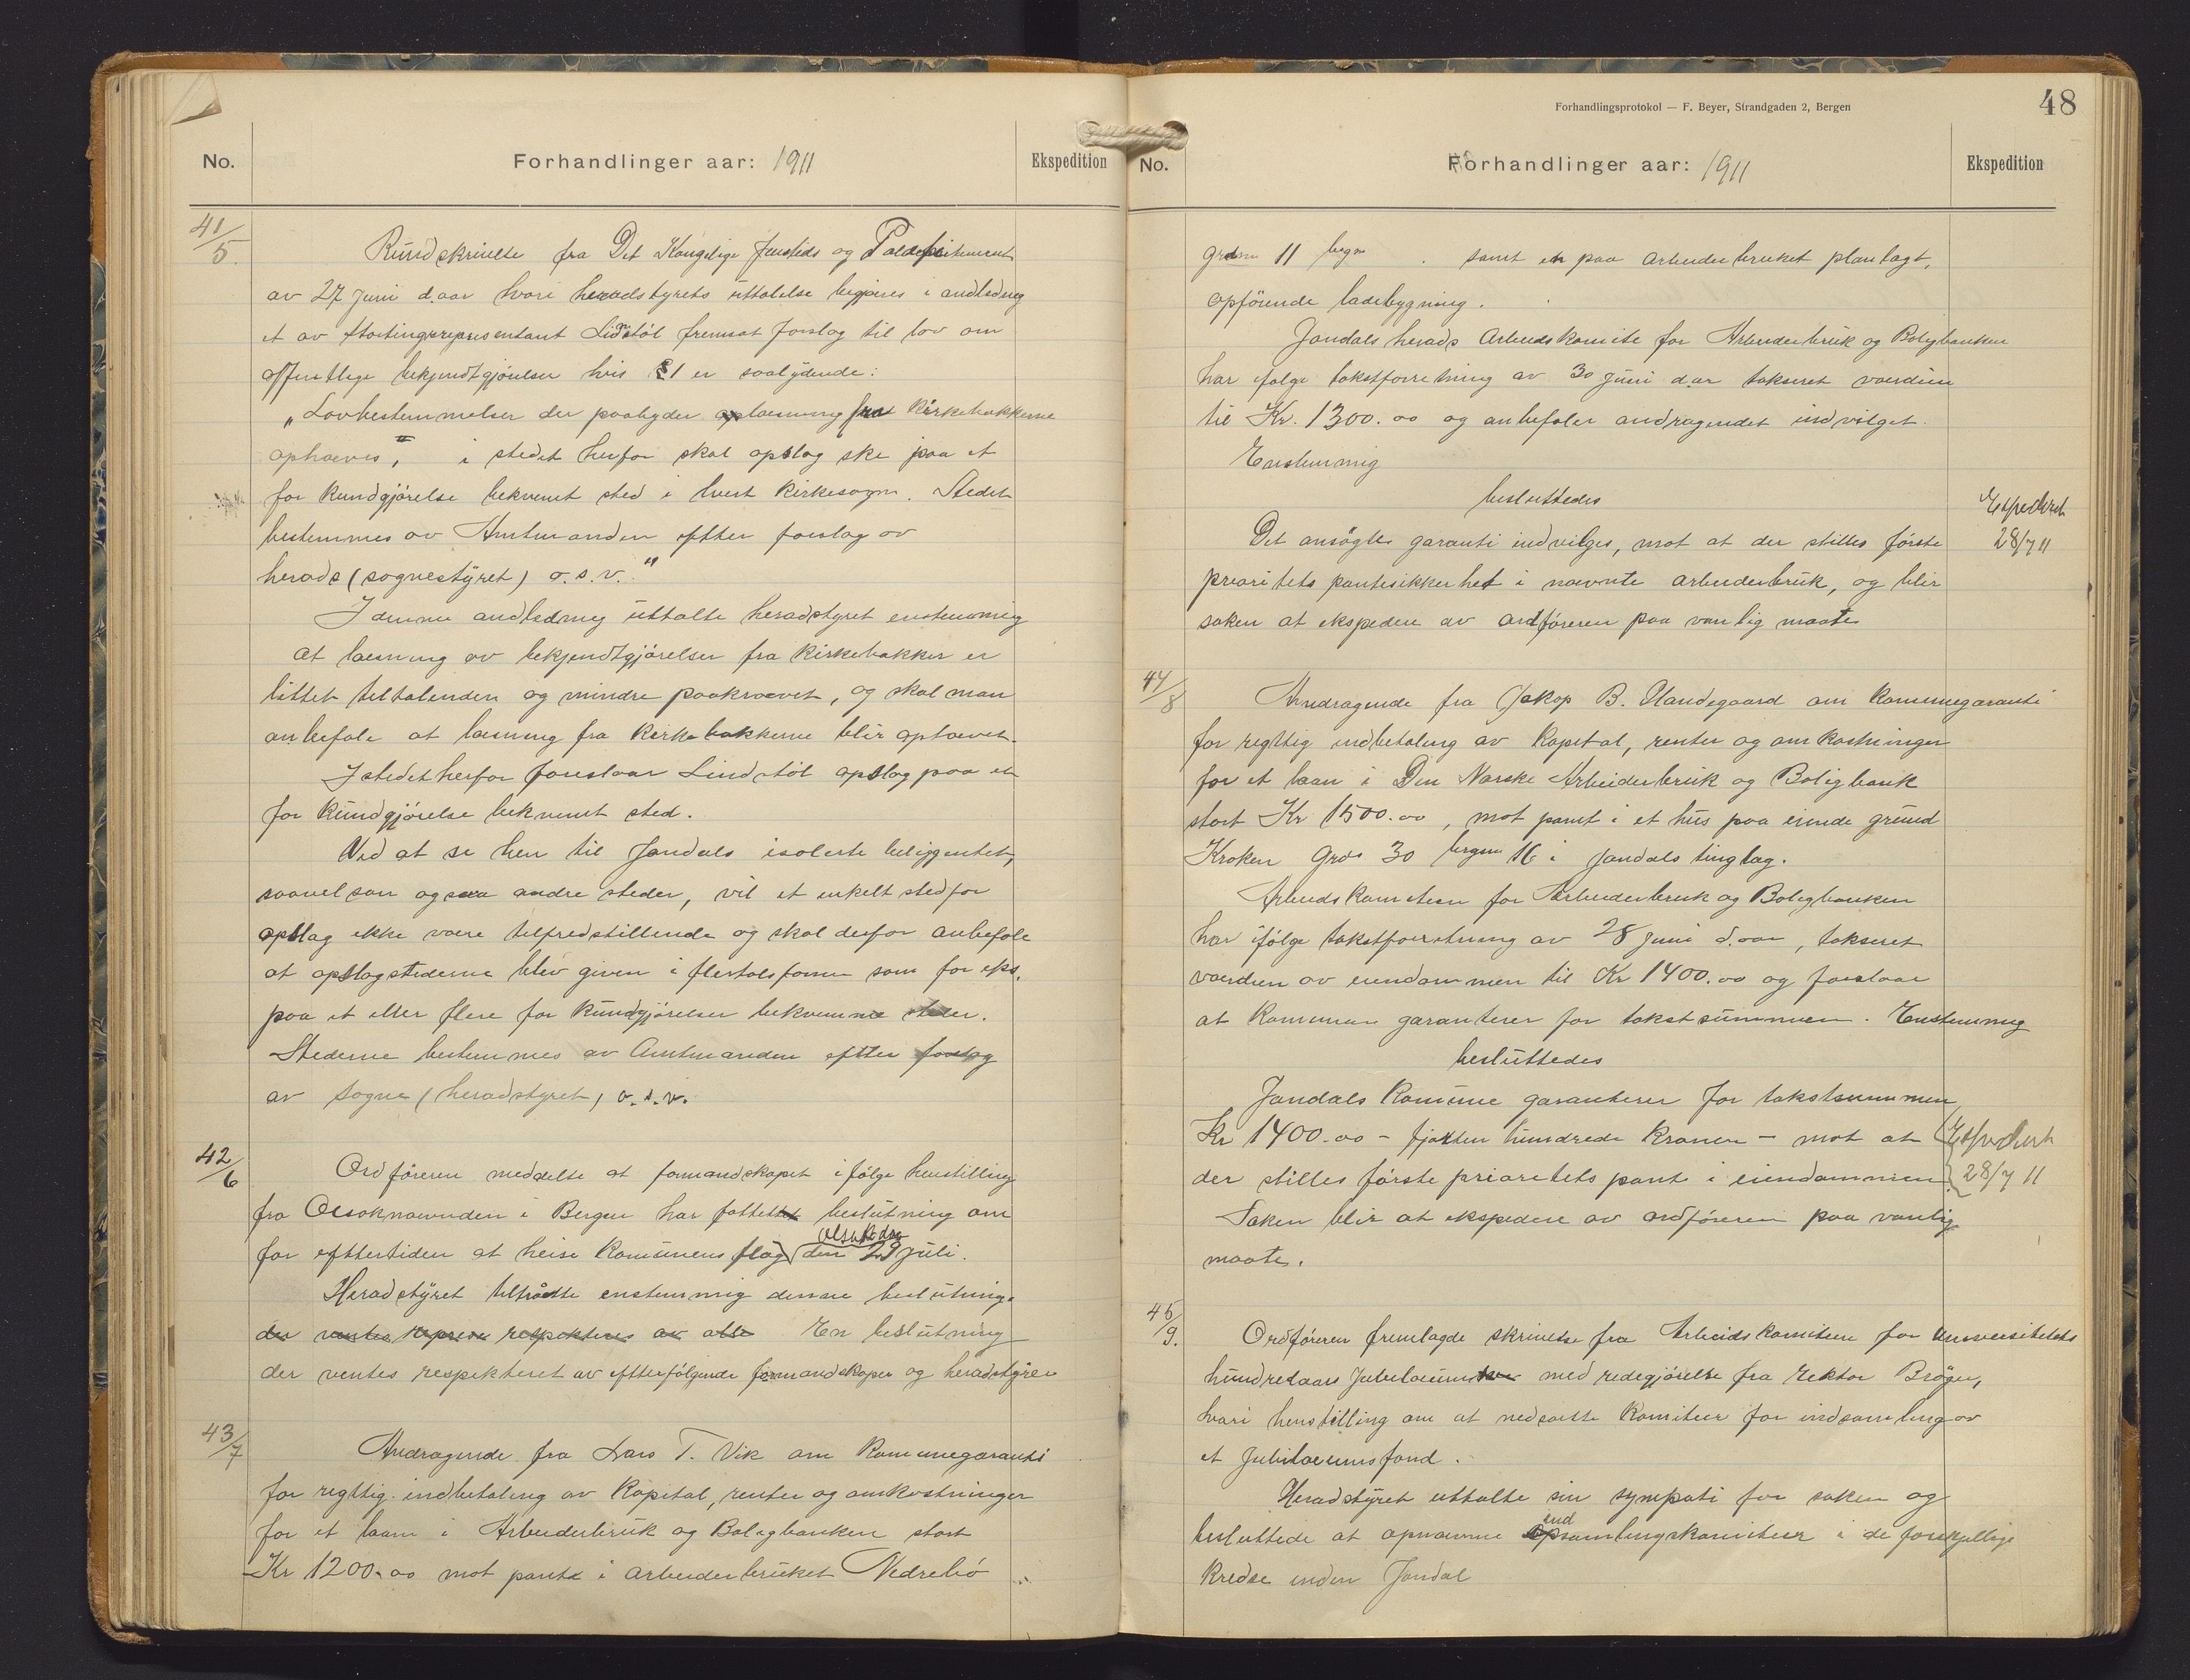 No. Forhandlinger aar: 1911 Ekspedition
41/5. Rundskrivelse fra Det Kongelige Justids og Politidepartement
av 27 juni d.aar hvori heradstyrets uttalelse begjæres i andledning
et av stortingsrepresentant Lindstøl fremsat forslag til lov om
offentlige bekjendtgjørelser hvis § 1 er saalydende:
"Lovbestemmelser der paabyder oplæsning fra Kirkebakkerne
ophæves, i stedet herfor skal opslag ske paa et
for kundgjørelse bekvemt sted i hvert Kirkesogn. Stedet
bestemmes av Amtmanden efter forslag av
herads (sognestyret) o.s.v."
I denne andledning uttalte heradstyret enstemmig
at læsning av bekjendtgjørelser fra Kirkebakker er
littet tiltalenden og mindre paakrævet, og skal man
anbefale at læsning fra Kirkebakkerne blir ophævet.
I stedet herfor foreslaar Lindstøl opslag paa et
for Kundgjørelse bekvemt sted.
Ved at se hen til Jondals isolerte beliggenhet,
saavel som ogsaa andre steder, vil et enkelt sted for
opslag ikke være tilfredstillende og skal derfor anbefale
at opslagstederne blev given i flertalsform som for eks.
paa et eller flere for Kundgjørelser bekvemme steder.
Stederne bestemmes av Amtmanden efter forslag
av sogne (heradstyret) o.s.v.
42/6 Ordføreren meddelte at formandskapet ifølge henstilling
fra Olsoknævnden i Bergen har fattet beslutning om
olsokdag
for eftertiden at heise Komunens flag den 29 juli.
Heradstyret tiltrådte enstemmig denne beslutning.
der ventes respekteres av alle En beslutning
der ventes respekteret av efterfølgende formandskaper og heradstyrer
43/7 Andragende fra Lars T. Vik om Komunegaranti
for regttig indbetaling av Kapital, renter og omkostninger
for et laan i Arbeiderbruk og Boligbanken stort
Kr 1200.00 mot pant i arbeiderbruket Nedrebø
Forhandlingsprotokol — F. Beyer, Strandgaden 2, Bergen
48
No. Forhandlinger aar: 1911 Ekspedition
grdsno 11 brgn samt en paa arbeiderbruket planlagt,
opførende ladebygning.
Jondals herads Arbeidskomite for Arbeiderbruk og Boligbanken
har ifølge takstforretning av 30 juni d.ar takseret værdien
til Kr. 1300.00 og anbefaler andragendet indvilget.
Enstemmig
besluttedes
Det ansøgte garanti indvilges, mot at der stilles første
prioritets pantesikkerhet i nævnte arbeiderbruk, og blir
saken at ekspedere av ordføreren paa vanlig maate
Expederet
28/7 11
44/8 Andragende fra Jakop B. Handegaard om Komunegaranti
for regttig indbetaling av Kapital, renter og omkostninger
for et laan i Den Norske Arbeiderbruk og Boligbank
stort Kr 1500.00, mot pant i et hus paa eiende grund
Kroken Grds 30 brgsn 16 i Jondals tinglag.
Arbeidskomiteen for Arbeiderbruk og Boligbanken
har ifølge takstforretning av 28 juni d.aar, takseret
værdien av eiendommen til Kr 1400.00 og foreslaar
at Komunen garanterer for takstsummen. Enstemmig
besluttedes
Jondals Komune garanterer for takstsummen
Kr 1400.00 - fjorten hundrede Kroner - mot at
der stilles første prioritets pant i eiendommen
Saken blir at ekspedere av ordføreren paa vanlig
maate.
Expederet
28/7 11
45/9. Ordføreren fremlagde skrivelse fra Arbeidskomiteen for Universitetets
hundredaars Jubilæum med redegjørelse fra rektor Brøgger,
hvori henstilling om at nedsætte Komiteer for indsamling av
et Jubilæumsfond.
Heradstyret uttalte sin sympati for saken og
ind
besluttede at opnævne opsamlingskomiteer i de forskjellige
Kredse inden Jondal